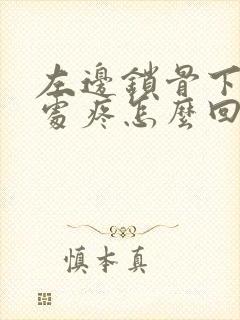 左邊鎖骨下
處疼怎麼回
慎本真